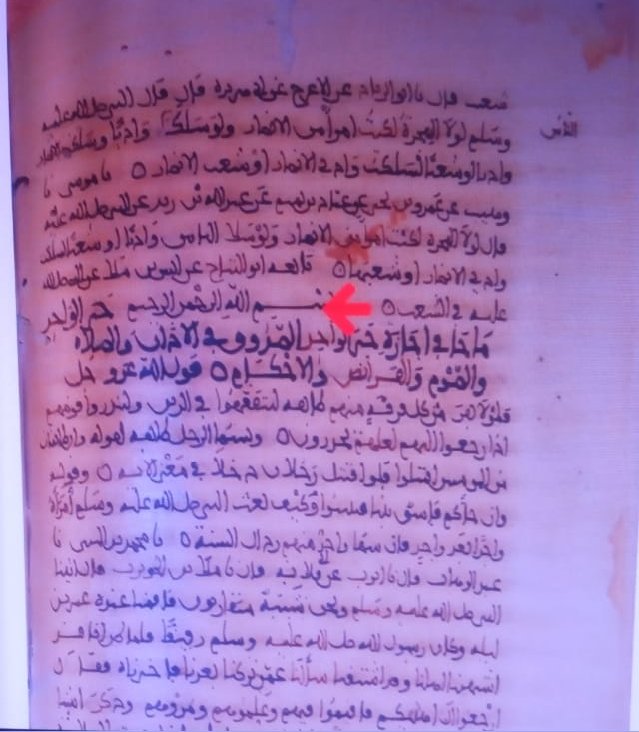 شعيب قال نا ابو الزناد عن الاعرج عن ابي هريرة قال قال النبي صلى الله عليه
وسلم لولا الهجرة لكنت امرأ من الانصار ولو سلك واديا وسلكت الانصار
واديا او شعبا لسلكت وادي الانصار او شعب الانصار ٥ نا موسى نا
وهيب عن عمرو بن يحيى عن عباد بن تميم عن عبد الله بن زيد عن النبي صلى الله عليه
قال لولا الهجرة لكنت امرأ من الانصار ولو سلك الناس واديا او شعبا لسلكت
وادي الانصار او شعبها ٥ تابعه ابو التياح عن انس عن النبي صلى الله
عليه في الشعب ٥ بسم الله الرحمن الرحيم خبر الواحد
ما جاء في اجازة خبر الواحد الصدوق في الاذان والصلاة
والصوم والفرائض والاحكام ٥ قول الله عز وجل
فلولا نفر من كل فرقة منهم طائفة ليتفقهوا في الدين ولينذروا قومهم
اذا رجعوا اليهم لعلهم يحذرون ٥ ويسمى الرجل طائفة لقوله وان طائفتان
من المومنين اقتتلوا فلو اقتتل رجلان دخلا في معنى الاية ٥ وقوله
ان جاءكم فاسق بنبا فتبينوا وكيف بعث النبي صلى الله عليه وسلم امراه
واحدا بعد واحد فان سها واحد منهم رد الى السنة ٥ نا محمد بن المثنى نا
عبد الوهاب قال نا ايوب عن ابي قلابة قال نا ملك بن الحويرث قال اتينا
النبي صلى الله عليه وسلم ونحن شببة متقاربون فاقمنا عنده عشرين
ليلة وكان رسول الله صلى الله عليه وسلم رفيقا فلما ظن انا قد
اشتهينا اهلنا وقد اشتقنا سألنا عمن تركنا بعدنا فاخبرناه فقال
ارجعوا الى اهليكم فاقيموا فيهم وعلموهم ومروهم وذكر اشيا